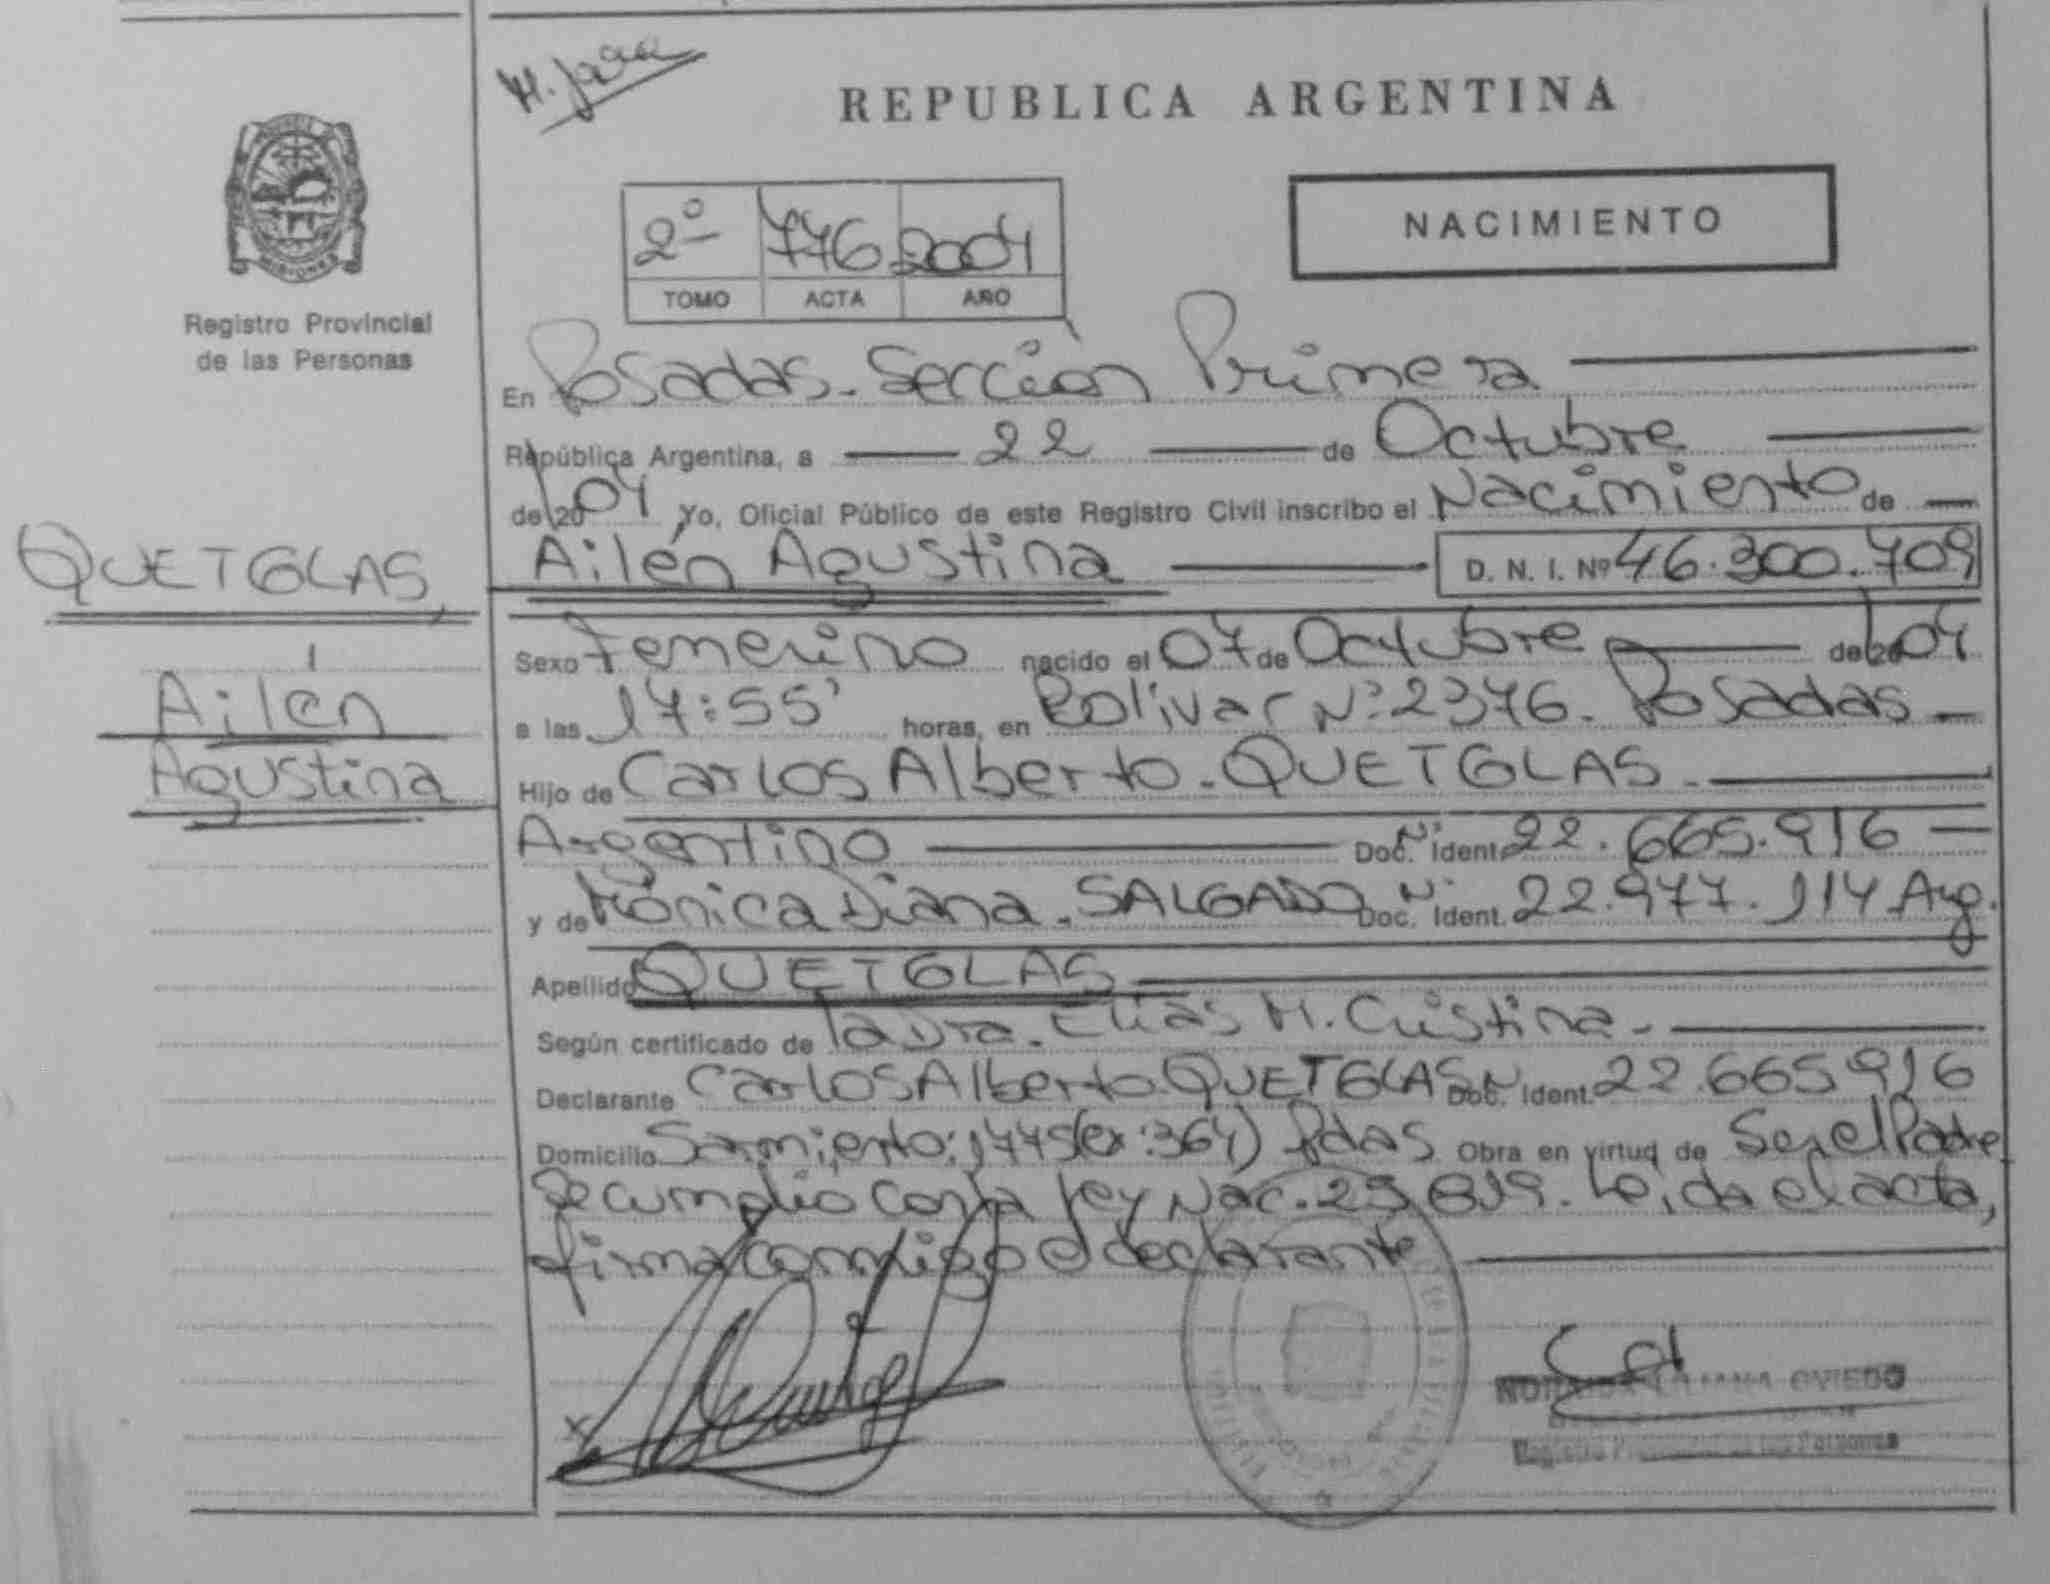 REPUBLICA ARGENTINA
MISIONES
Registro Provincial
de las Personas
2º 776 2004
TOMO ACTA AÑO
NACIMIENTO
En Posadas. Sección Primera
República Argentina, a 22 de Octubre
de 2004 Yo, Oficial Público de este Registro Civil inscribo el Nacimiento de
Ailén Agustina D. N. I. Nº 46.300.709
QUETGLAS,
Ailén
Agustina
Sexo Femenino nacido el 07 de Octubre de 2004
a las 17:55' horas, en Bolívar Nº 2376. Posadas
Hijo de Carlos Alberto. QUETGLAS.
Argentino Doc. Nº Ident. 22.665.916
y de Mónica Diana. SALGADO Doc. Nº Ident. 22.977.114 Arg.
Apellido QUETGLAS
Según certificado de la Dra. Elias M. Cristina.
Declarante Carlos Alberto QUETGLAS Doc. Nº Ident. 22.665916
Domicilio Sarmiento: 1775 (ex: 364) Pdas Obra en virtud de Ser el Padre
Se cumplio con la Ley Nac. 25 819. Leida el acta,
firma conmigo el declarante
OVIEDO
Registro Provincial de las Personas